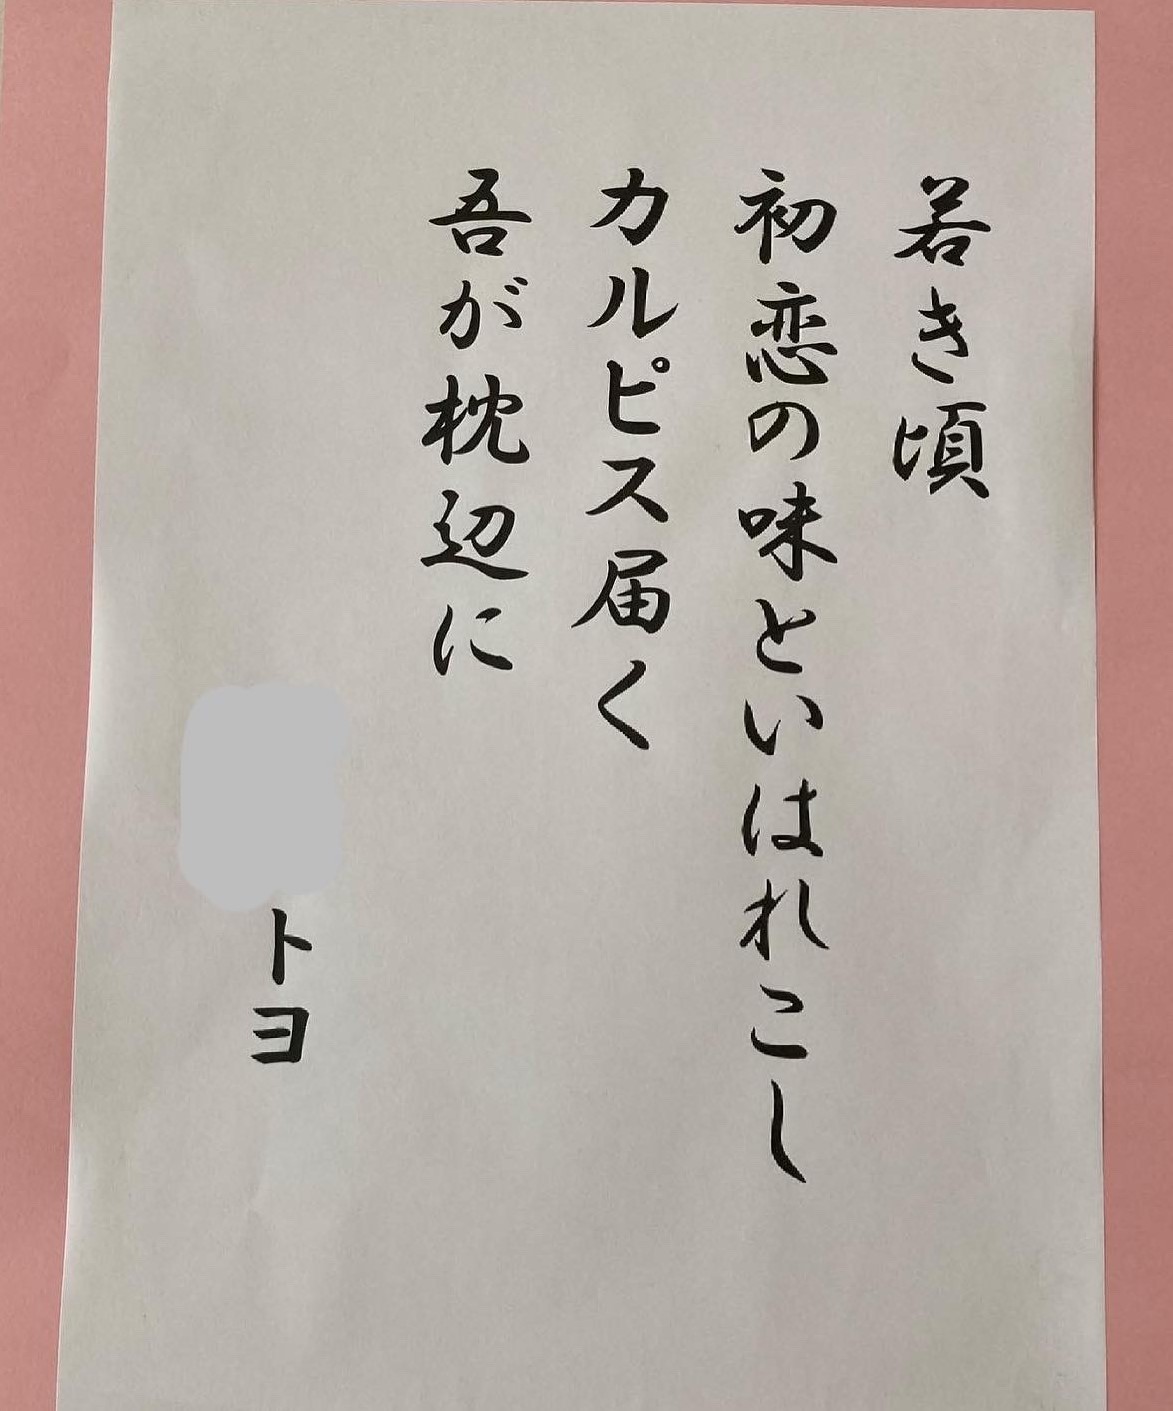 若き頃
初恋の味といはれこし
カルピス届く
吾が枕辺に
トヨ